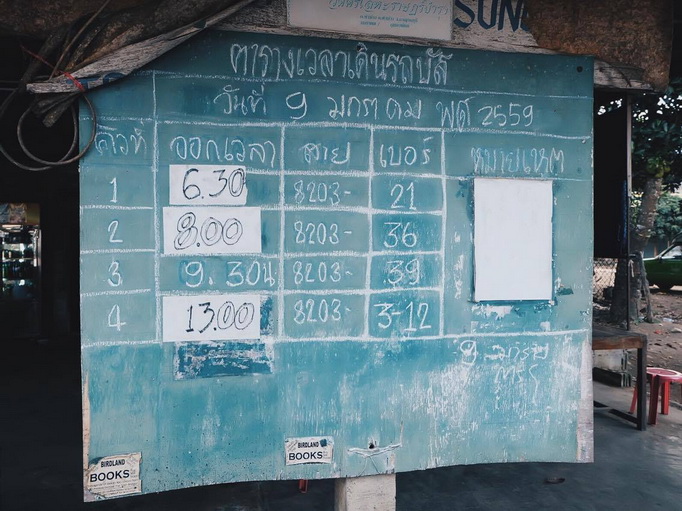 SUN
ตารางเวลาเดินรถบัส
วันที่ 9 มกราคม พศ 2559
คิวที่ ออกเวลา สาย เบอร์ หมายเหตุ
1 6.30 8203- 21
2 8.00 8203- 36
3 9.30น 8203- 39
4 13.00 8203- 3-12
BIRDLAND
BOOKS
BIRDLAND
BOOKS